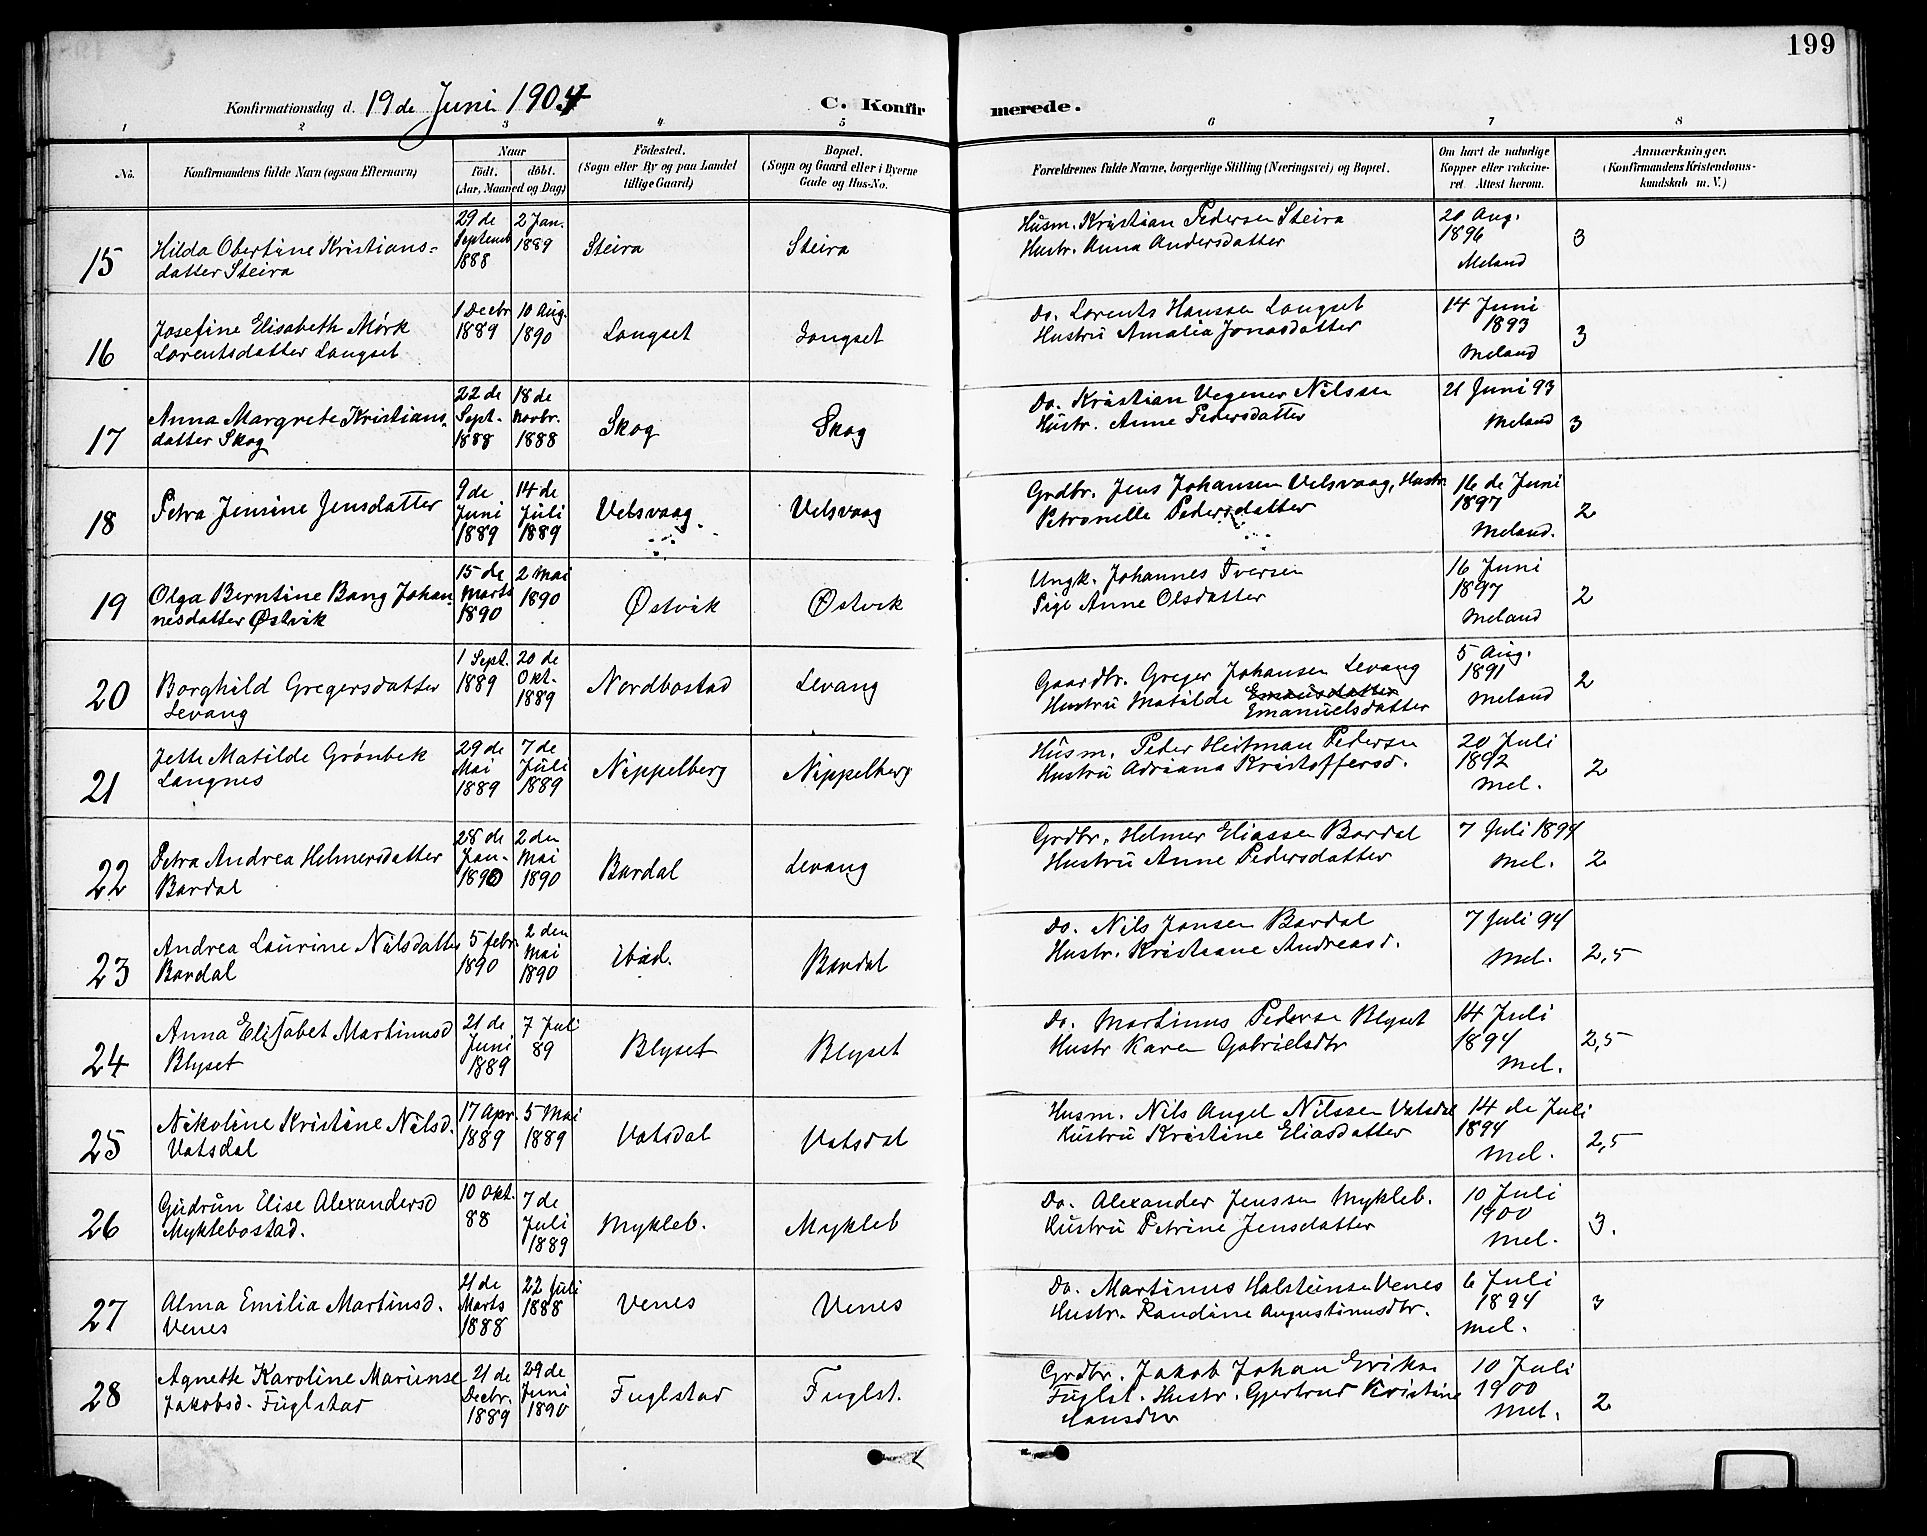 199
Konfirmationsdag d. 19de Juni 1904 C. Konfirmerede.
1 2 3 4 5 6 7 8
No. Konfirmandens fulde Navn (ogsaa Efternavn) Naar født. døbt. (Aar, Maaned og Dag) Fødested. (Sogn eller By og paa Landet tillige Gaard) Bopæl. (Sogn og Gaard eller i Byerne Gade og Hus-No. Forældrenes fulde Navne, borgerlige Stilling (Næringsvei) og Bopæl. Om havt de naturlige Kopper eller vakcineret. Attest herom. Anmærkninger. (Konfirmandens Kristendomskundskab m. V.)
15 Hilda Obertine Kristians=
datter Steira
29 de Septemb 1888
2 Jan. 1889
Steira
Steira
Husm. Kristian Pedersen Steira
Hustr. Anna Andersdatter
20 Aug. 1896 Meland
3
16 Josefine Elisabeth Mørk
Lorentsdatter Langset
1 Decbr 1889
10 Aug. 1890
Langset
Langset
Do. Lorents Hanssen Langset
Hustru Amalia Jonasdatter
14 Juni 1893 Meland
3
17 Anna Margrete Kristians-
datter Skog
22 de Sept. 1888
18 de Novbr. 1888
Skog
Skog
Do. Kristian Vegener Nilssen
Hustr. Anne Pedersdatter
21 Juni 93 Meland
3
18 Petra Jensine Jensdatter
9 de Juni 1889
14 de Juli 1889
Velsvaag
Velsvaag
Grdbr. Jens Johansen Velsvaag, Hustr
Petronelle Pedersdatter
16 de Juni 1897 Meland.
2
19 Olga Berntine Bang Johan-
nesdatter Østvik
15 de Marts 1890
2 Mai 1890
Østvik
Østvik
Ungk. Johannes Iversen
Pige Anne Olsdatter
16 Juni 1897 Meland
2
20 Borghild Gregersdatter
Levang
1 Sept. 1889
20 de Okt. 1889
Nordbostad
Levang
Gaardbr. Greger Johansen Levang
Hustru Matilde Emausdatter
Emanuelsdatter
5 Aug. 1891 Meland
2
21 Jette Matilde Grønbek
Langnes
29 de Mai 1889
7 de Juli 1889
Nippelberg
Nippelberg
Husm. Peder Heitman Pedersen
Hustru Adriana Kristoffersd.
20 Juli 1892 Mel.
2
22 Petra Andrea Helmersdatter
Bardal
28 de Jan- 1890
2 den Mai 1890
Bardal
Levang
Grdbr. Helmer Eliassen Bardal
Hustru Anne Pedersdatter
7 Juli 1894 Mel.
2
23 Andrea Laurine Nilsdatter
Bardal
5 febr. 1890
2 den Mai 1890
ibid.
Bardal
Do. Nils Jansen Bardal
Hustr. Kristiane Andreasd.
7 Juli 94 Mel.
2,5
24 Anna Elisabet Martinusd
Blyset
21 de Juni 1889
7 Juli 89
Blyset
Blyset
Do. Martinus Pedersen Blyset
Hustr Karen Gabrielsdtr
14 Juli 1894 Mel.
2,5
25 Nikoline Kristine Nilsd.
Vatsdal
17 Apr. 1889
5 Mai 1889
Vatsdal
Vatsdal
Husm. Nils Angel Nilssen Vatsdal
Hustru Kristine Eliasdatter
14 de Juli 1894 Mel.
2,5
26 Gudrun Elise Alexandersd
Myklebostad.
10 Okt. 88
7 de Juli 1889
Mykleb.
Mykleb
Do. Alexander Jenssen Mykleb.
Hustru Petrine Jensdatter
10 Juli 1900 Mel.
3.
27 Alma Emilia Martinsd.
Venes
21 de Marts 1888
22 Juli 1888
Venes
Venes
Do. Martinus Halsteinsen Venes
Hustr. Randine Augustinusdtr.
6 Juli 1894 Mel.
3
28 Agnethe Karoline Mariense
Jakobsd. Fuglstad
21 de Decbr. 1889
29 de Juni 1890
Fuglstad
Fuglst.
Grdbr. Jakob Johan Eriks
Fuglst. Hustr. Gjertrud Kristine
Hansdtr
10 Juli 1900 Mel.
2